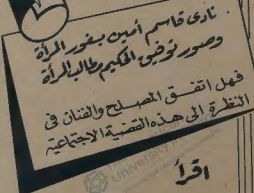 نادى قاسم أمين بسفور المرأة
وصور توفيق الحكيم مطالب المرأة
فهل اتفق المصلح والفنان فى
النظرة إلى هذه القضية الاجتماعية
اقرأ